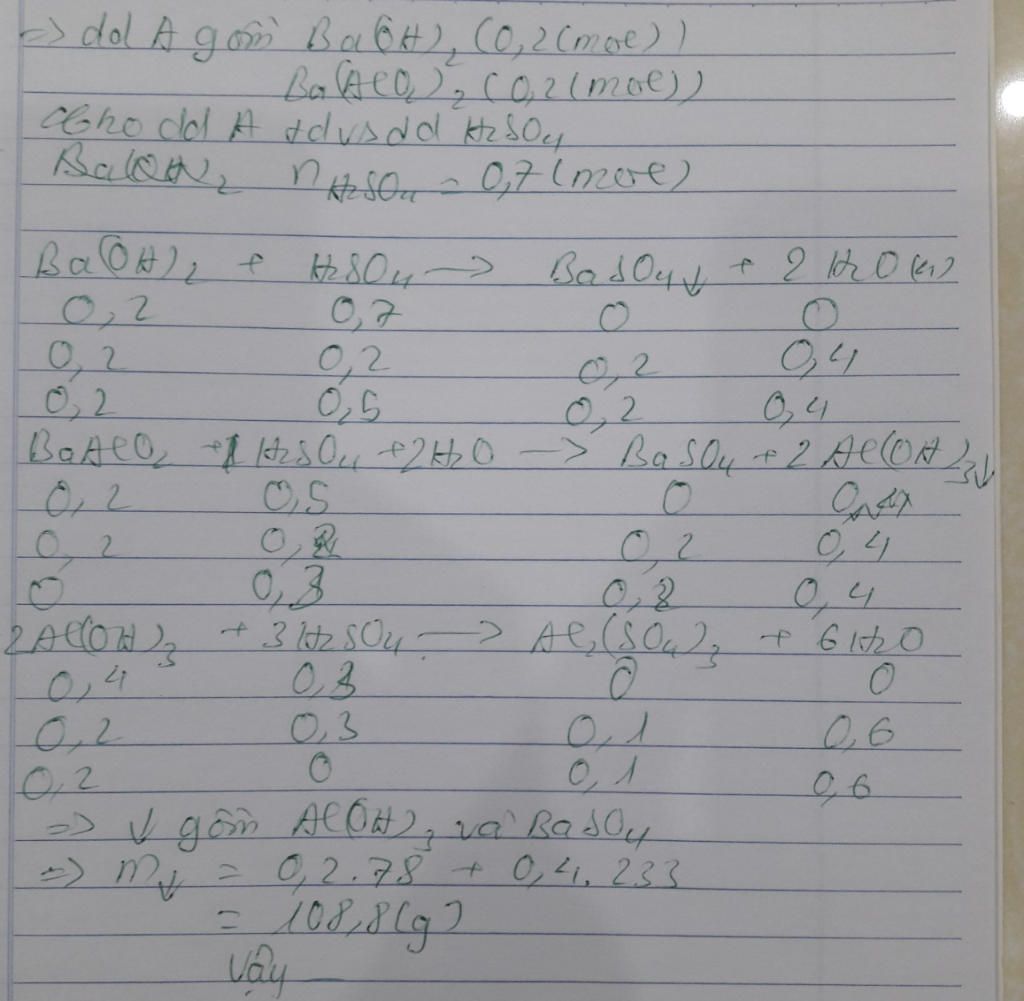 => dd A gồm Ba(OH)2 (0,2(mol))
Ba(AlO2)2 (0,2(mol))
Cho dd A td vs dd H2SO4
Ba(OH)2 nH2SO4 = 0,7 (mol)
Ba(OH)2 + H2SO4 → BaSO4↓ + 2H2O
0,2 0,7 0 0
0,2 0,2 0,2 0,4
0,2 0,5 0,2 0,4
BaAlO2 + 1H2SO4 + 2H2O → BaSO4 + 2Al(OH)3↓
0,2 0,5 0
0,2 0,2 0,2 0,4
0 0,3 0,2 0,4
2Al(OH)3 + 3H2SO4 → Al2(SO4)3 + 6H2O
0,4 0,3 0 0
0,2 0,3 0,1 0,6
0,2 0 0,1 0,6
=> ↓ gồm Al(OH)3 và BaSO4
=> m↓ = 0,2.78 + 0,4.233
= 108,8(g)
Vậy